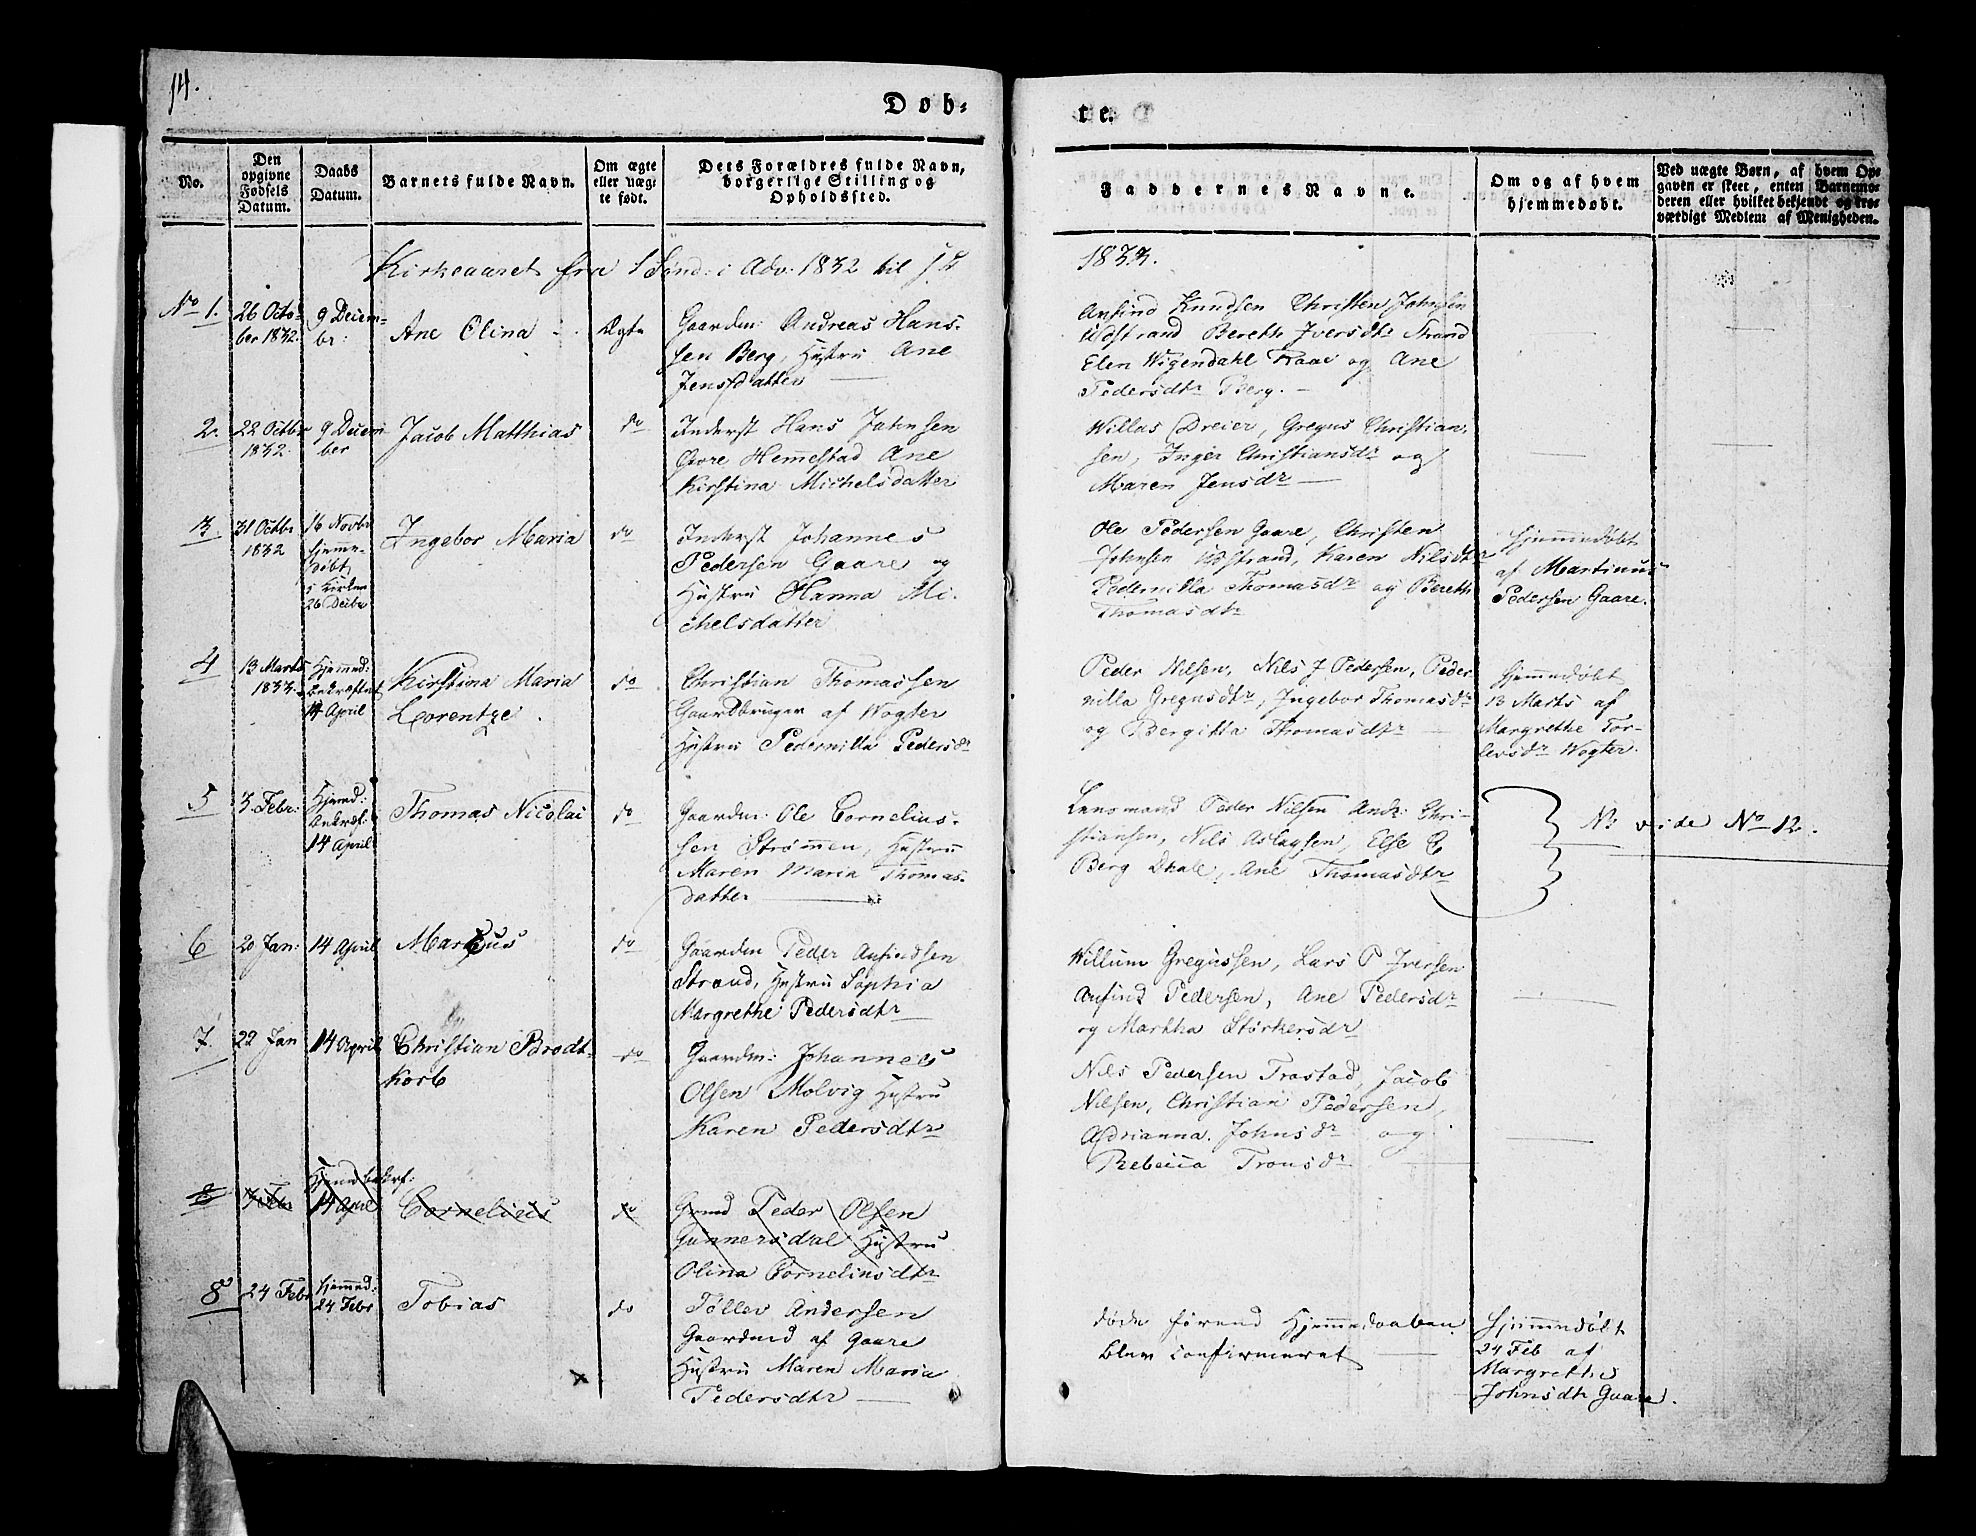 14.
Døb-
te.
No.
Den
opgivne
Fødsels
Datum.
Daabs
Datum.
Barnets fulde Navn.
Om ægte
eller uæg-
te født.
Dets Forældres fulde Navn,
borgerlige Stilling og
Opholdssted.
Faddernes Navne.
Om og af hvem
hjemmedøbt.
Ved uægte Børn, af hvem Op-
gaven er skeet, enten Barnemo-
deren eller hvilket bekjendt og tro-
værdigt Medlem af Menigheden.
Kirkeaaret fra 1 Sønd: i Adv. 1832 til
1833.
No 1.
26 Octo-
ber 1832.
9 Decem-
br:
Ane Olina
Ægte
Gaardm: Andreas Hans-
sen Berg, Hustru Ane
Jensdatter
Anfind Knudsen Christen Johnsen
Udstrand Bereth Iversdtr Strand
Elen Wigendahl Traae og Ane
Pedersdtr Berg.
2.
22 Octbr
1832
9 Decem
ber
Jacob Matthias
do
Inderst Hans Johnsen
Hemmestad Ane
Kirstina Michelsdatter
Willas Dreier, Gregus Christian-
sen, Inger Christiansdr og
Maren Jensdr
3.
31 Octbr
1832
16 Novbr
hjemme-
døbt
i Kirken
26 Decbr
Ingebor Maria
do
Inderst Johannes
Pedersen Gaare og
Hustru Hanna Mi-
chelsdatter
Ole Pedersen Gaare, Christen
Johnsen Udstrand, Karen Nilsdtr
Pedernilla Thomasdr og Bereth
Thomasdtr
Hjemmedøbt
af Martinus
Pedersen Gaare.
4
13 Marts
1833
Hjemmed:
bekræftet
14 April
Kirstina Maria
Lorentze
do
Christian Thomassen
Gaardbruger af Wogter
Hustru Pedernilla Pedersdr
Peder Nilsen, Nils J Pedersen, Peder
nilla Gregusdtr, Ingebor Thomasdr
og Bergitta Thomasdtr
Hjemmedøbt
13 Marts af
Margrethe Tor-
levsdr Wogter.
5
3. Febr:
Hjemmd:
Bekræf:
14 April
Thomas Nicolai
do
Gaardm: Ole Cornelius-
sen Strømmen, Hustru
Maren Maria Thomas-
datter
Lensmand Peder Nilsen And: Chri-
stiansen, Nils Aslaysen, Else
Berg Ane Thomasdtr
vide No 12.
6
20 Jan:
14 April
Marcus
do
Gaardm Peder Anfindsen
Strand, Hustru Sophia
Margrethe Pedersdtr
Willum Gregussen, Lars P Iversen
Anfind Pedersen, Ane Pedersdr
og Martha Størkersdr
7.
22 Jan
14 April
Christian Brodt-
korb
do
Gaardm: Johannes
Olsen Molvig Hustru
Karen Pedersdtr
Nils Pedersen Trastad, Jacob
Nilsen, Christian Pedersen,
Adrianna Johnsdr og
Rebecca Tronsdr
8
3 Febr
Hjemd bekrf:
14 April
Cornelius
do
Peder Olsen
Gunnersdal Hustru
Olina Corneliusdtr
8
24 Febr
hjemmed:
24 Febr
Tobias
do
Tøllev Andersen
Gaardmd af Gaare
Hustru Maren Maria
Pedersdtr
døde førend Hjemmedaaben
blev confirmeret
Hjemmedøbt
24 Feb af
Margrethe
Johnsdtr Gaare.